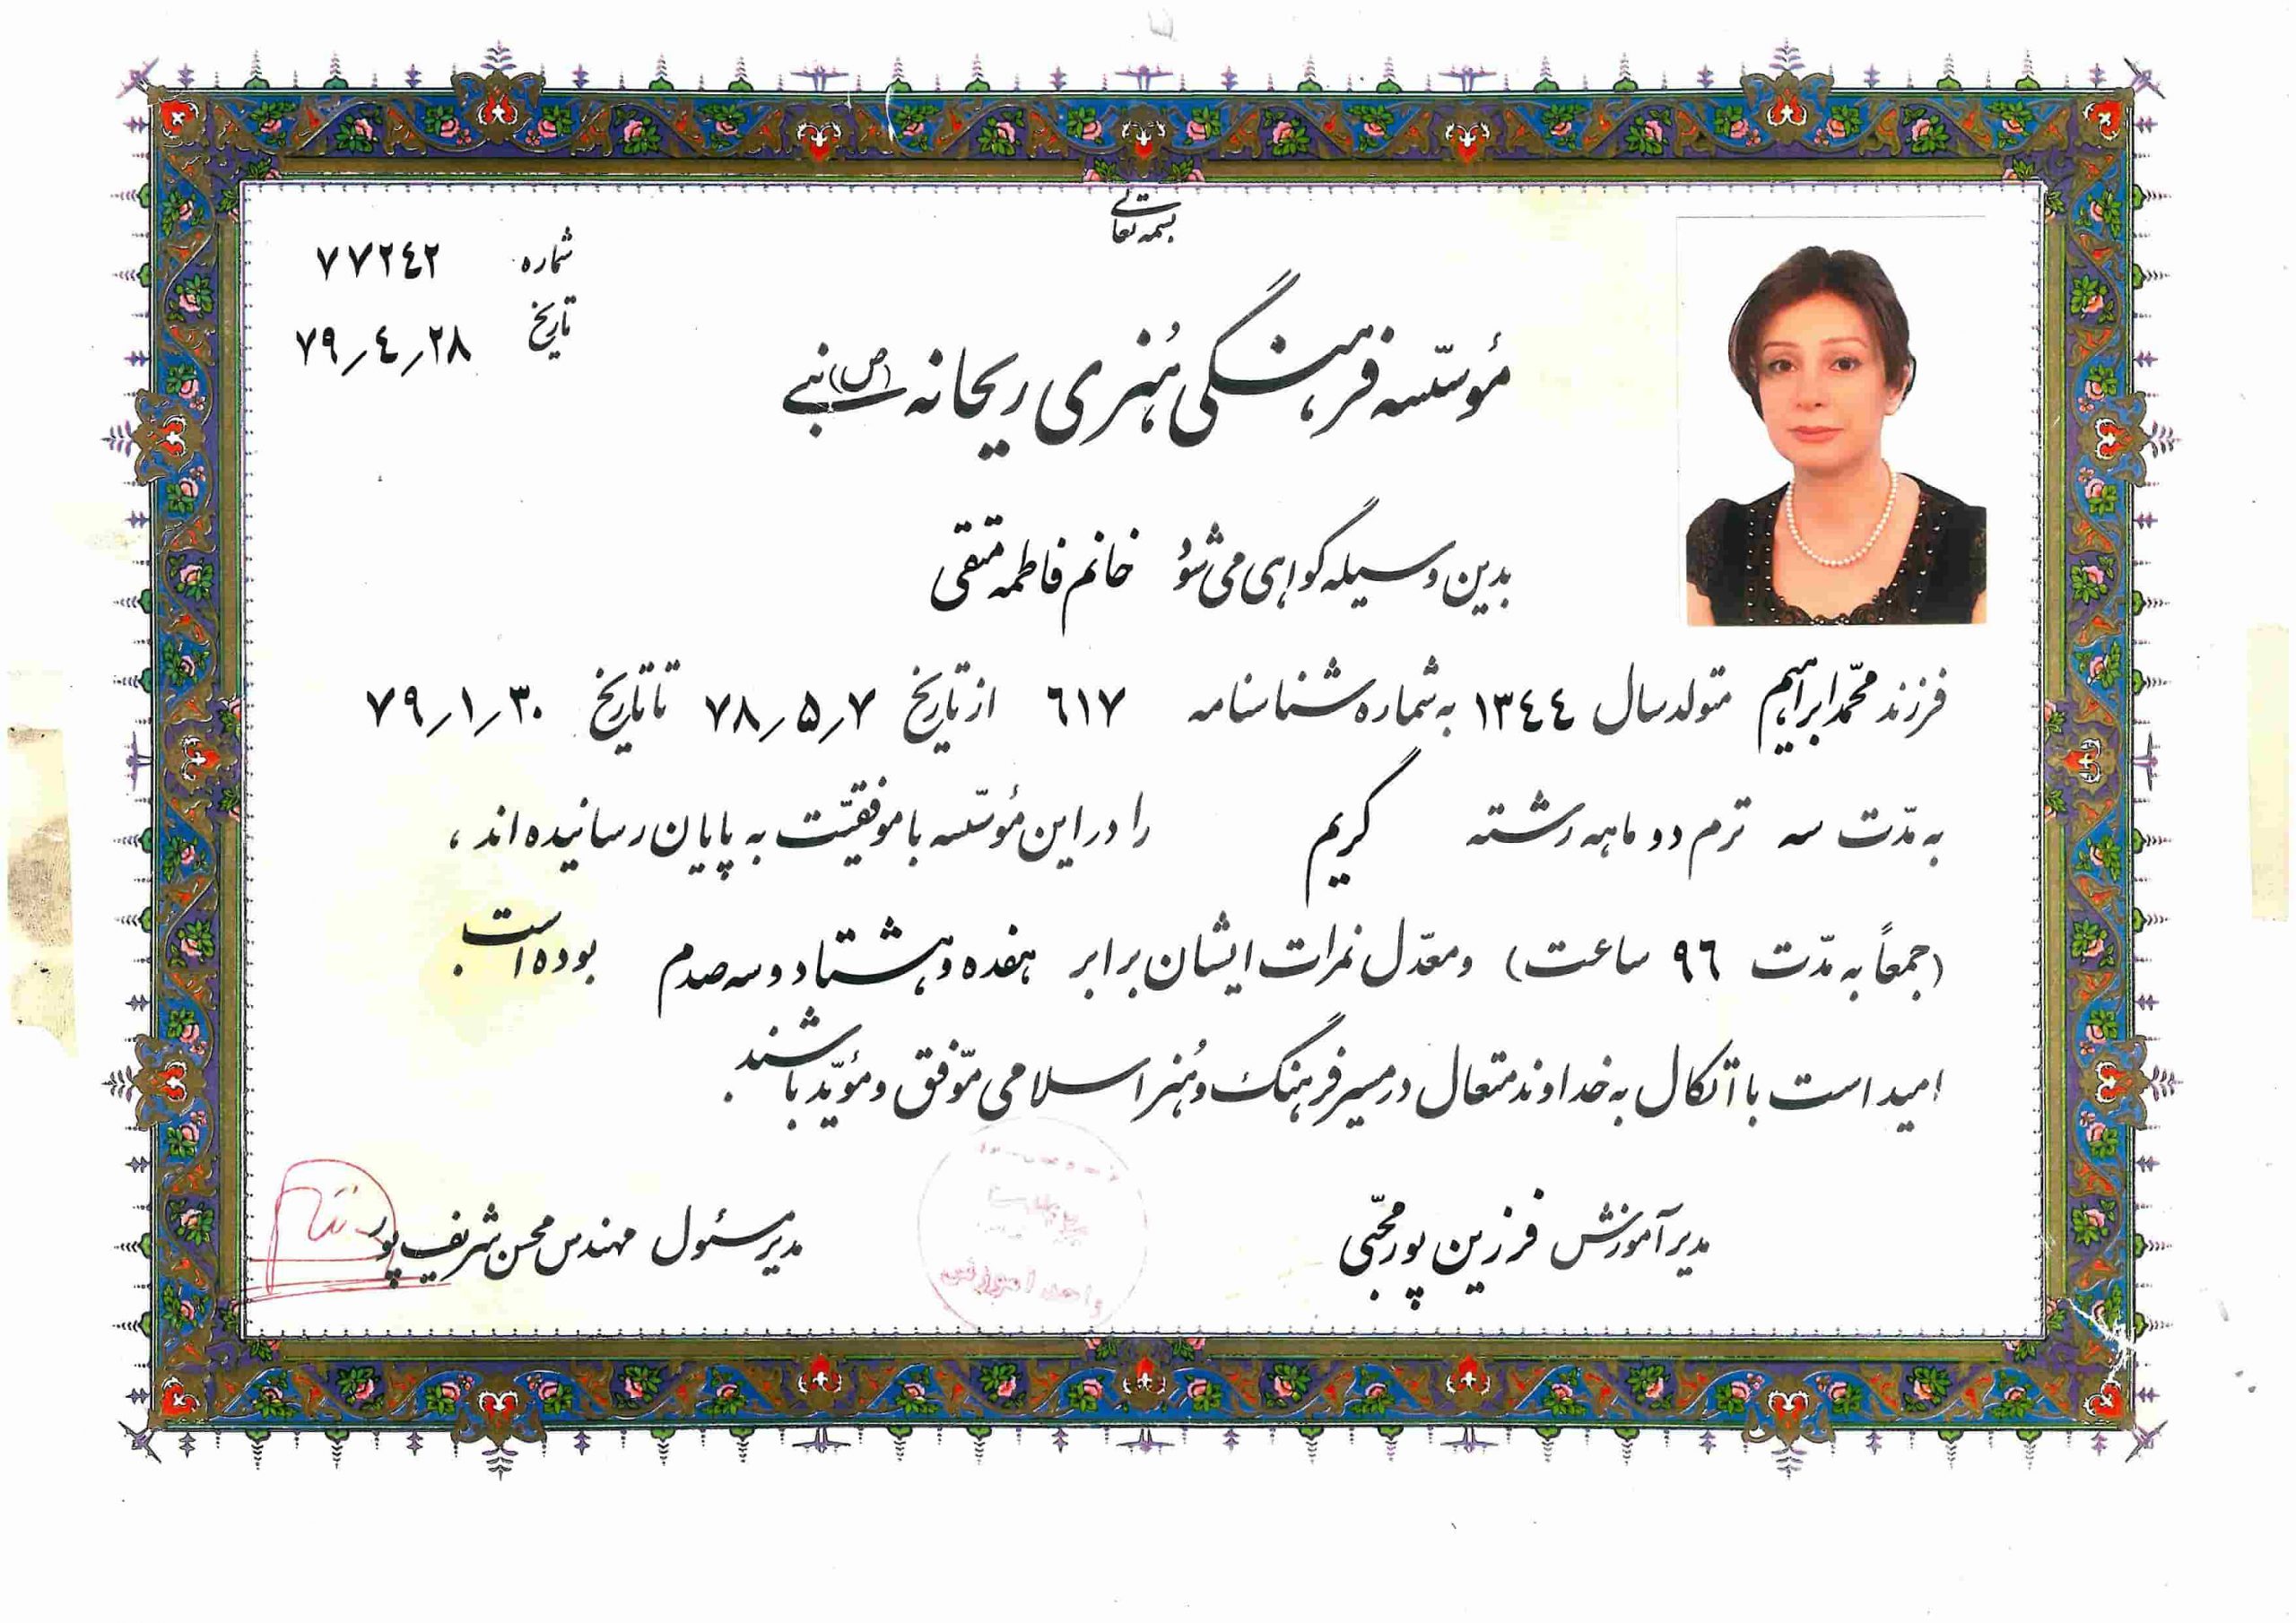 بسمه تعالی
شماره ۷۷۲٤۲
تاریخ ۷۹٫٤٫۲۸
مؤسّسه فرهنگی هُنری ریحانه نبی (ص)
بدین وسیله گواهی می شود خانم فاطمه متقی
فرزند محمّدابراهیم متولد سال ۱۳٤٤ به شماره شناسنامه ٦۱۷ از تاریخ ۷۸٫۵٫۷ تا تاریخ ۷۹٫۱٫۳۰
به مدّت سه ترم دو ماهه رشته گریم را در این مؤسّسه با موفقیّت به پایان رسانیده اند،
(جمعاً به مدّت ۹٦ ساعت) و معدّل نمرات ایشان برابر هفده و هشتاد و سه صدم بوده است.
امید است با اتّکال به خداوند متعال در مسیر فرهنگ و هُنر اسلامی موّفق و مؤیّد باشند.
مدیر آموزش فرزین پورمحبّی
مدیر مسئول مهندس محسن شریف پور
واحد آموزش